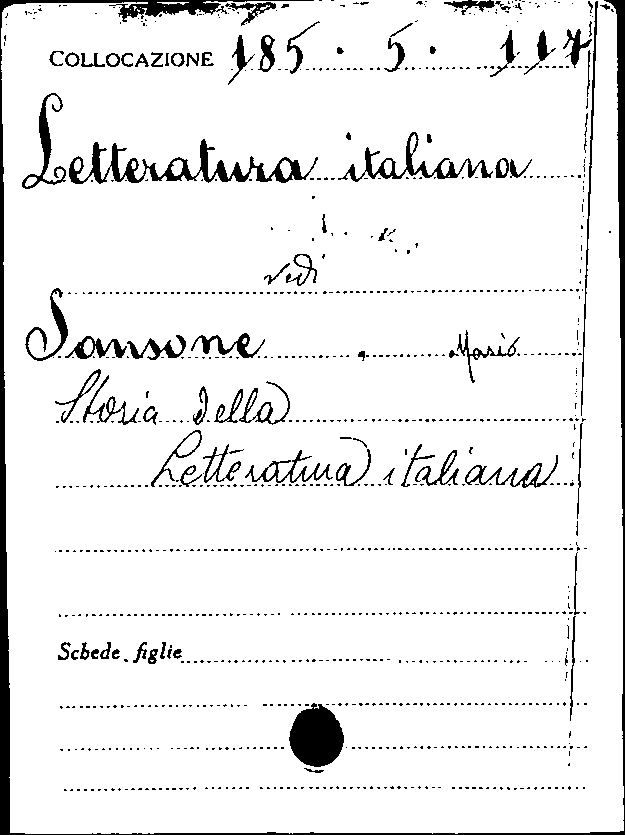 COLLOCAZIONE 185. 5. 117
Letteratura italiana
vedi
Sansone, Mario
Storia della
Letteratura italiana
Schede figlie